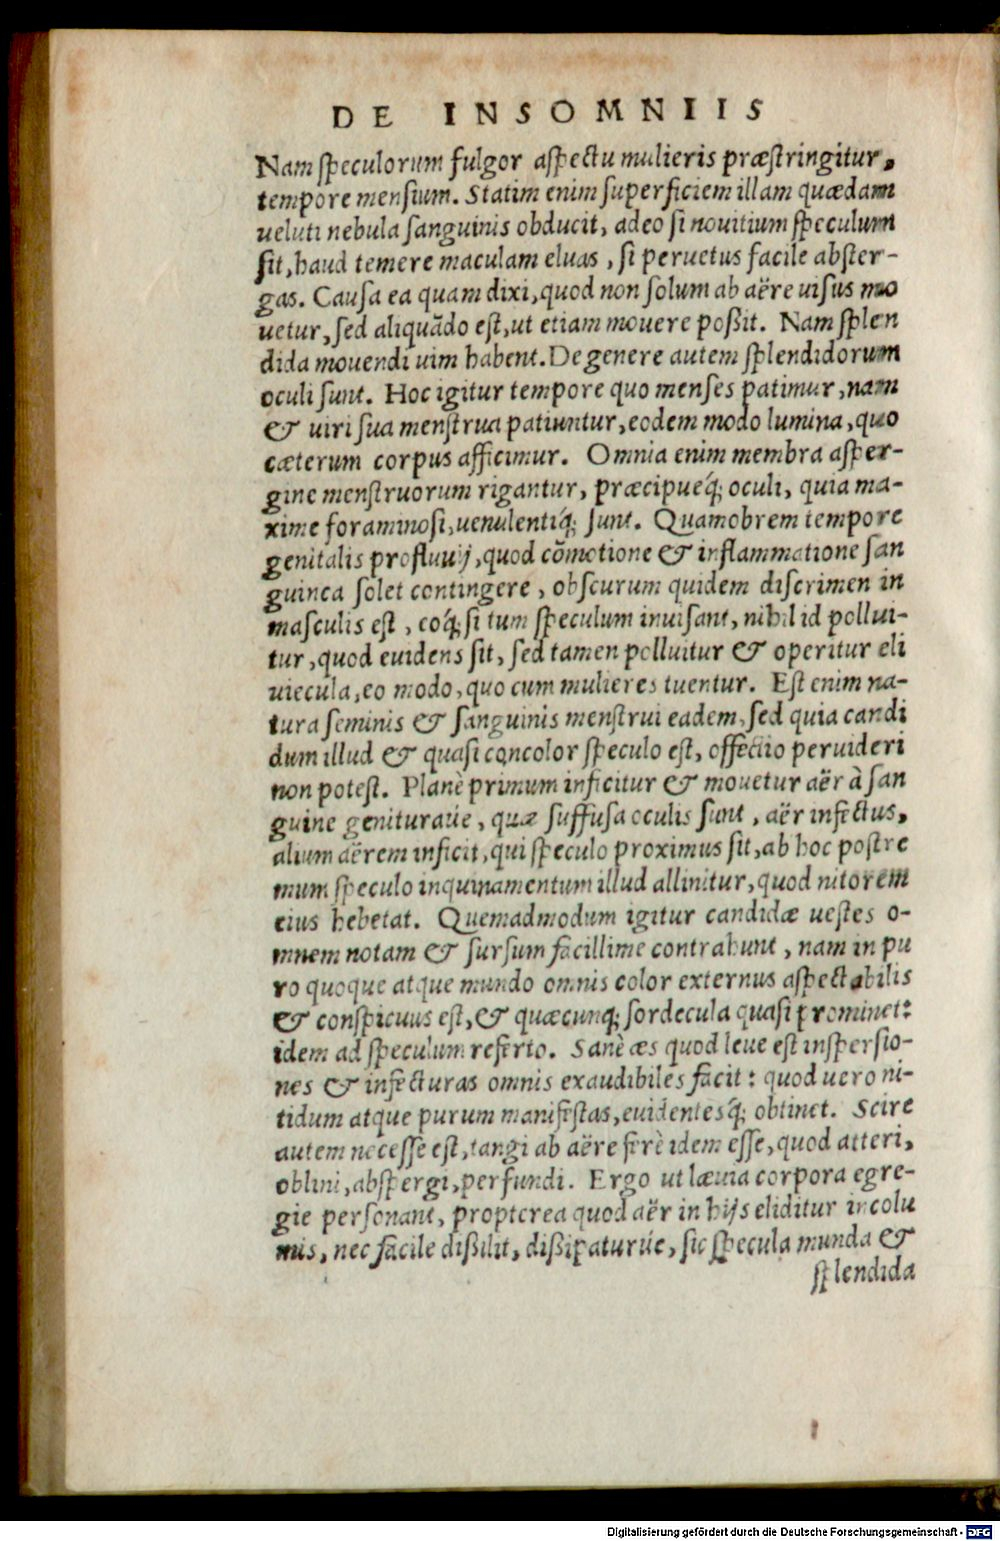 DE INSOMNIIS
Nam speculorum fulgor aspectu mulieris præstringitur,
tempore mensium. Statim enim superficiem illam quædam
ueluti nebula sanguinis obducit, adeo si nouitium speculum
sit, haud temere maculam eluas, si peruetus facile abster-
gas. Causa ea quam dixi, quod non solum ab aëre uisus mo
uetur, sed aliquãdo est, ut etiam mouere poßit. Nam splen
dida mouendi uim habent. De genere autem splendidorum
oculi sunt. Hoc igitur tempore quo menses patimur, nam
& uiri sua menstrua patiuntur, eodem modo lumina, quo
cæterum corpus afficimur. Omnia enim membra asper-
gine menstruorum rigantur, præcipueq́; oculi, quia ma-
xime foraminosi, uenulentiq́; sunt. Quamobrem tempore
genitalis profluuij, quod cõmotione & inflammatione san
guinea solet contingere, obscurum quidem discrimen in
masculis est, eoq́; si tum speculum inuisant, nihil id pollui-
tur, quod euidens sit, sed tamen polluitur & operitur eli
uiecula, eo modo, quo cum mulieres tuentur. Est enim na-
tura seminis & sanguinis menstrui eadem, sed quia candi
dum illud & quasi concolor speculo est, offectio peruideri
non potest. Planè primum inficitur & mouetur aër à san
guine genituraúe, quæ suffusa oculis sunt, aër infectus,
alium aërem inficit, qui speculo proximus sit, ab hoc postre
mum speculo inquinamentum illud allinitur, quod nitorem
eius hebetat. Quemadmodum igitur candidæ uestes o-
mnem notam & sursum facillime contrahunt, nam in pu
ro quoque atque mundo omnis color externus aspectabilis
& conspicuus est, & quæcunq; sordecula quasi prominet:
idem ad speculum referto. Sanè æs quod leue est inspersio-
nes & infecturas omnis exaudibiles facit: quod uero ni-
tidum atque purum manifestas, euidentesq́; obtinet. Scire
autem necesse est, tangi ab aëre ferè idem esse, quod atteri,
oblini, abspergi, perfundi. Ergo ut læuia corpora egre-
gie personant, propterea quod aër in hijs eliditur incolu
mis, nec facile dißilit, dißipaturúe, sic specula munda &
splendida
Digitalisierung gefördert durch die Deutsche Forschungsgemeinschaft - DFG